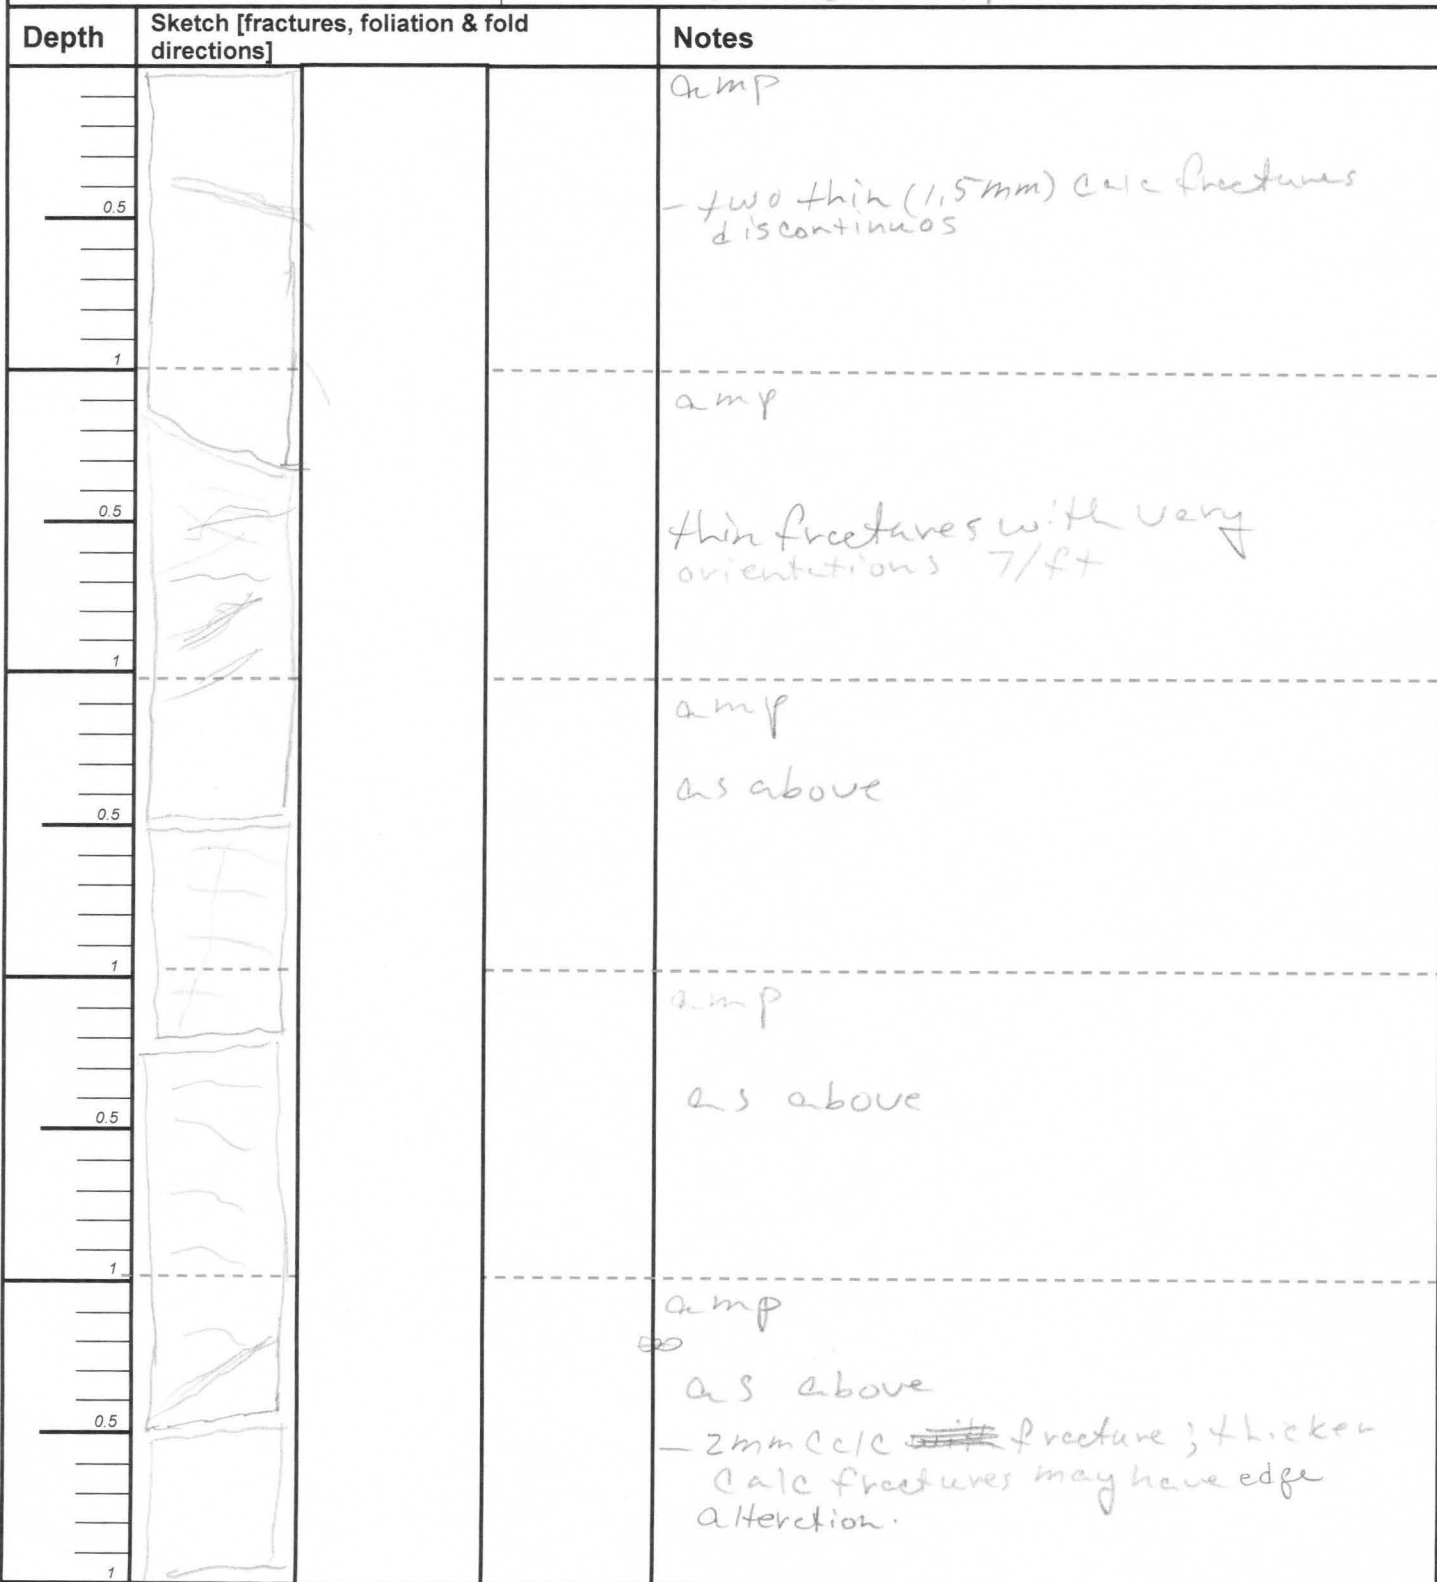 Depth
Sketch [fractures, foliation & fold
directions]
Notes
amp
- two thin (1,5mm) Calc fractures
discontinuos
0.5
1
amp
0.5
thin fractures with very
orientations 7/ft
1
amp
as above
0.5
1
amp
as above
0.5
1
amp
as above
0.5
- 2mm Calc fracture ; thicker
Calc fractures may have edge
alteration.
1